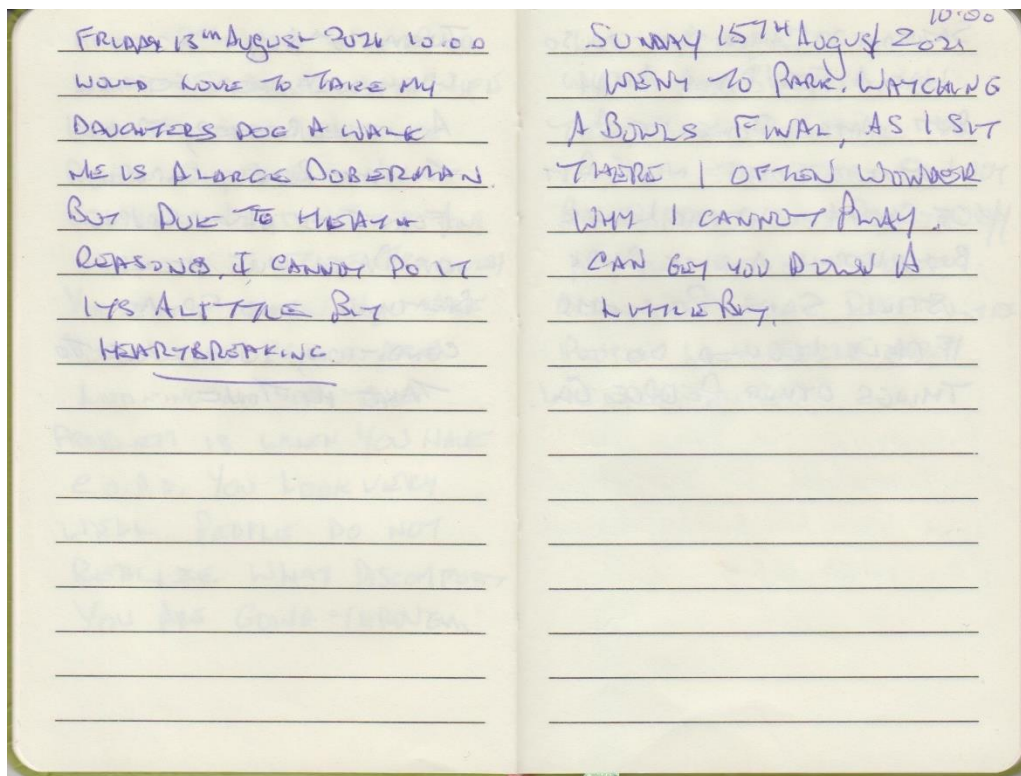 FRIDAY 13TH AUGUST 2021 10.00
WOULD LOVE TO TAKE MY
DAUGHTERS DOG A WALK
HE IS A LARGE DOBERMAN.
BUT DUE TO HEALTH
REASONS, I CANNOT DO IT
ITS A LITTLE BIT
HEARTBREAKING.
10.00
SUNDAY 15TH AUGUST 2021
WENT TO PARK. WATCHING
A BOWLS FINAL, AS I SIT
THERE I OFTEN WONDER
WHY I CANNOT PLAY.
CAN GET YOU DOWN A
LITTLE BIT.